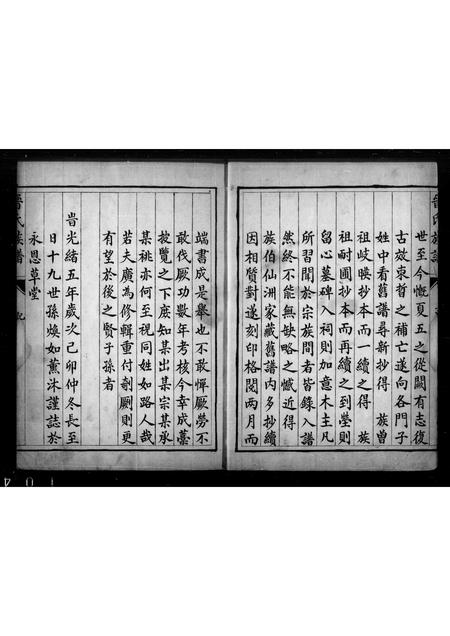 世至今慨夏五之從闕有志復
古敢衷晢之補亡遂向各門子
姓中看舊譜尋新抄得　族曾
祖岐暎抄本而一續之得　族
祖耐圃抄本而再續之到塋則
留心墓碑入祠則加意木主凡
所習聞於宗族間者皆錄入譜
然終不能無缺略之憾近得
族伯仙洲家藏舊譜內多抄續
因相質對遂刻印格閱兩月而
端書成是舉也不敢憚厥勞不
敢伐厥功數年考核今幸成藁
披覽之下庶知某出某宗某承
某祧亦何至視同姓如路人哉
若夫廣為修輯重付剞劂則更
有望於後之賢子孫者
旹光緒五年歲次己卯仲冬長至
日十九世孫煥如薰沐謹誌於
永恩草堂
氏族譜